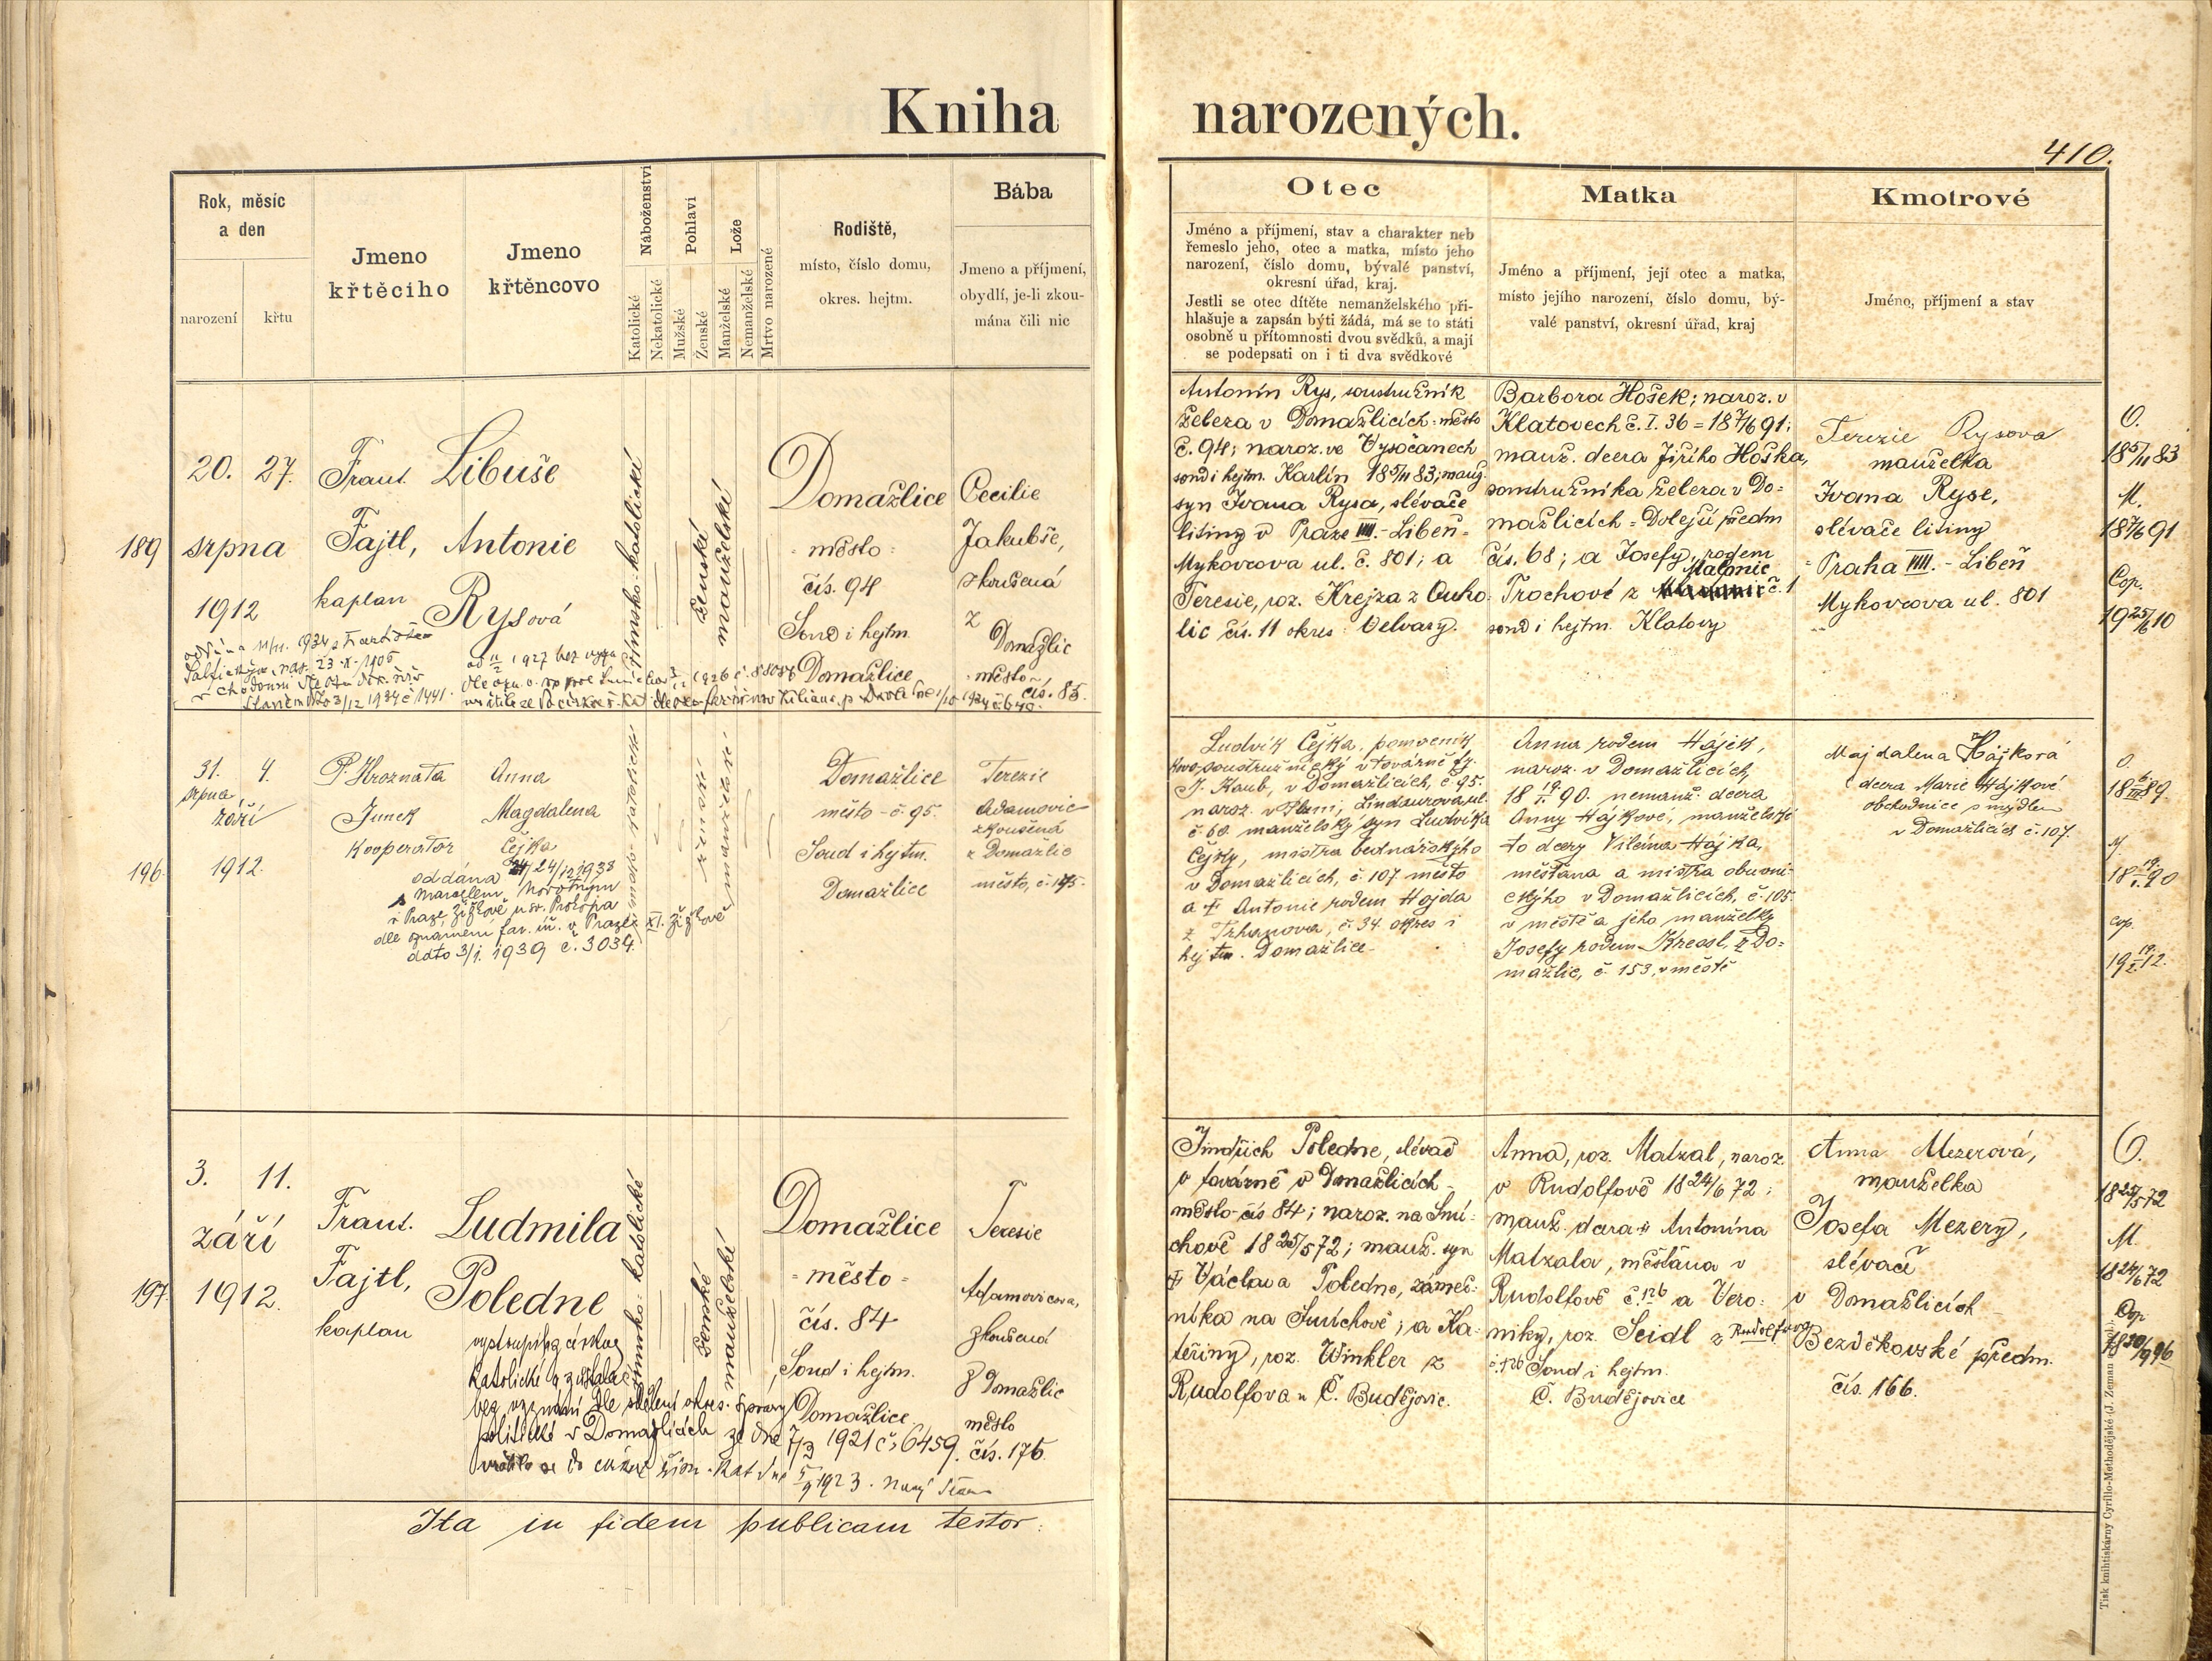 Kniha narozených.
410.
Rok, měsíc
a den
narození
křtu
Jmeno
křtěcího
Jmeno
křtěncovo
Náboženství
Katolické
Nekatolické
Pohlaví
Mužské
Ženské
Lože
Manželské
Nemanželské
Mrtvo narozené
Rodiště,
místo, číslo domu,
okres. hejtm.
Bába
Jmeno a příjmení,
obydlí, je-li zkou-
mána čili nic
Otec
Jméno a příjmení, stav a charakter neb
řemeslo jeho, otec a matka, místo jeho
narození, číslo domu, bývalé panství,
okresní úřad, kraj.
Jestli se otec dítěte nemanželského při-
hlašuje a zapsán býti žádá, má se to státi
osobně u přítomnosti dvou svědků, a mají
se podepsati on i ti dva svědkové
Matka
Jméno a příjmení, její otec a matka,
místo jejího narození, číslo domu, bý-
valé panství, okresní úřad, kraj
Kmotrové
Jméno, příjmení a stav
189
20. 27.
srpna
1912
Frant.
Fajtl,
kaplan
Libuše
Antonie
Rysová
římsko-katolické
ženské
manželské
Domažlice
město
čís. 94
Soud i hejtm.
Domažlice
Cecilie
Jakubše,
zkoušená
z
Domažlic
město
čís. 85.
Antonín Rys, soustružník
železa v Domažlicích-město
č. 94; naroz. ve Vysočanech
soud i hejtm. Karlín 18 5/11 83; manž.
syn Ivana Rysa, slévače
litiny v Praze VIII.-Libeň-
Mykovcova ul. č. 801; a
Teresie, roz. Krejza z Ouho-
lic čís. 11 okres Velvary.
Barbora Hošek; naroz. v
Klatovech č. I. 36 = 18 7/6 91;
manž. dcera Jiřího Hoška,
soustružníka železa v Do-
mažlicích = Dolejší předm
čís. 68; a Josefy, rodem
Trochové z Malonic č. 1
soud i hejtm. Klatovy
Terezie Rysova
manželka
Ivana Ryse,
slévače litiny
Praha VIII. - Libeň
Mykovcova ul. 801
O.
18 5/11 83
M.
18 7/6 91
Cop.
19 25/6 10
196
31. 4.
srpna
září
1912.
P. Hroznata
Junek
kooperator
Anna
Magdalena
Čejka
oddána 24/12 1938
s Marcellem Novotným
v Praze, Žižkově u sv. Prokopa
dle oznámení far. úř. v Praze XI. Žižkově
ddto 3/1. 1939 č. 3034.
římsko-katolické
ženské
manželské
Domažlice
město - č. 95.
Soud i hejtm.
Domažlice
Terezie
Adamovic
zkoušená
z Domažlic
město, č. 175.
Ludvík Čejka, pomocník
kovosoustružnický v továrně fy.
J. Kaub, v Domažlicích, č. 95.
naroz. v Plzni, Lindaurova ul.
č. 60. manželský syn Ludvíka
Čejky, mistra bednářského
v Domažlicích, č. 107 město
a † Antonie rodem Hojda
z Trhanova, č. 34. okres i
hejtm. Domažlice
Anna rodem Hájek,
naroz. v Domažlicích,
18 19/I. 90. nemanž. dcera
Anny Hájkové, manželské
to dcery Viléma Hájka,
měšťana a mistra obuvni-
ckého v Domažlicích, č. 105.
v městě a jeho manželky
Josefy rodem Kressl, z Do-
mažlic, č. 153, v městě
Majdalena Hájková
dcera Marie Hájkové
obchodnice s mýdlem
v Domažlicích č. 107.
O.
18 6/III 89.
M.
18 19/I. 90
cop.
19 19/I. 12.
197
3. 11.
září
1912.
Frant.
Fajtl,
kaplan
Ludmila
Poledne
vystoupila z církve
katolické a zůstala
bez vyznání dle sdělení okres. správy
politické v Domažlicích ze dne 7/3 1921 č. 6459.
vrátila se do církve řím. kat dne 5/9 1923.
římsko-katolické
ženské
manželské
Domažlice
město
čís. 84
Soud i hejtm.
Domažlice
Teresie
Adamovicova,
zkoušená
z Domažlic
město
čís. 175.
Jindřich Poledne, slévač
v továrně v Domažlicích-
město-čís 84; naroz. na Smí-
chově 18 25/5 72; manž. syn
† Václava Poledne, zámeč-
níka na Smíchově; a Ka-
teřiny, roz. Winkler z
Rudolfova u Č. Budějovic.
Anna, roz. Matzal, naroz.
v Rudolfově 18 24/6 72;
manž. dcera † Antonína
Matzala, měšťana v
Rudolfově č. 126 a Vero-
niky, roz. Seidl z Rudolfova
č. 126 Soud i hejtm.
Č. Budějovice
Anna Mezerová,
manželka
Josefa Mezery,
slévače
v Domažlicích -
Bezděkovské předm.
čís. 166.
O.
18 25/5 72
M.
18 24/6 72
Cop
18 20/9 96
Ita in fidem publicam testor:
Tisk knihtiskárny Cyrillo-Methodějské (J. Zeman